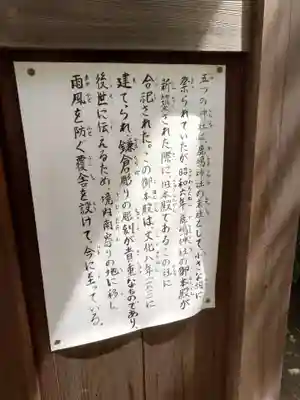 五つの神社は鹿嶋神社の末社として、小さな祠に
祭られていたが、昭和六年、鹿嶋神社の御本殿が
新築された際に、旧本殿であるこの社に
合祀された。この御本殿は、文化八年(一八一一)に
建てられ、鎌倉彫りの彫刻が貴重なものであり、
後世に伝えるため、境内南寄りの地に移し、
雨風を防ぐ覆舎を設けて、今に至っている。